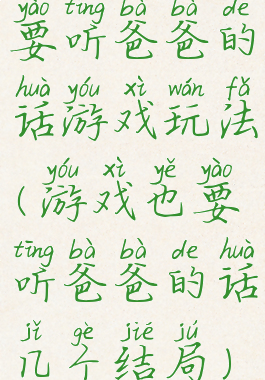 yào tīng bà bà de
要听爸爸的
huà yóu xì wán fǎ
话游戏玩法
yóu xì yě yào
(游戏也要
tīng bà bà de huà
听爸爸的话
jǐ gè jié jú
几个结局)